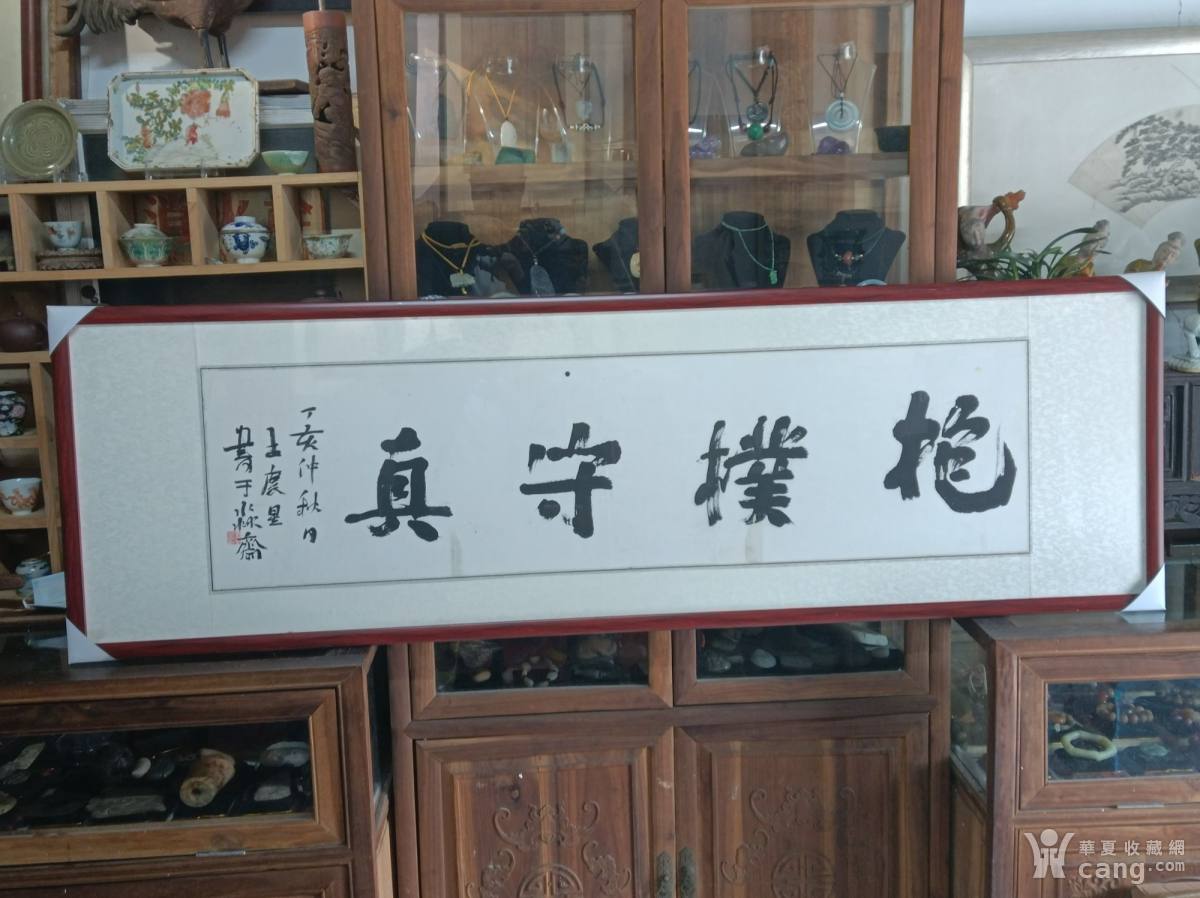 抱樸守真
丁亥仲秋日
王虔星
書于淼齋
華夏收藏網
cang.com